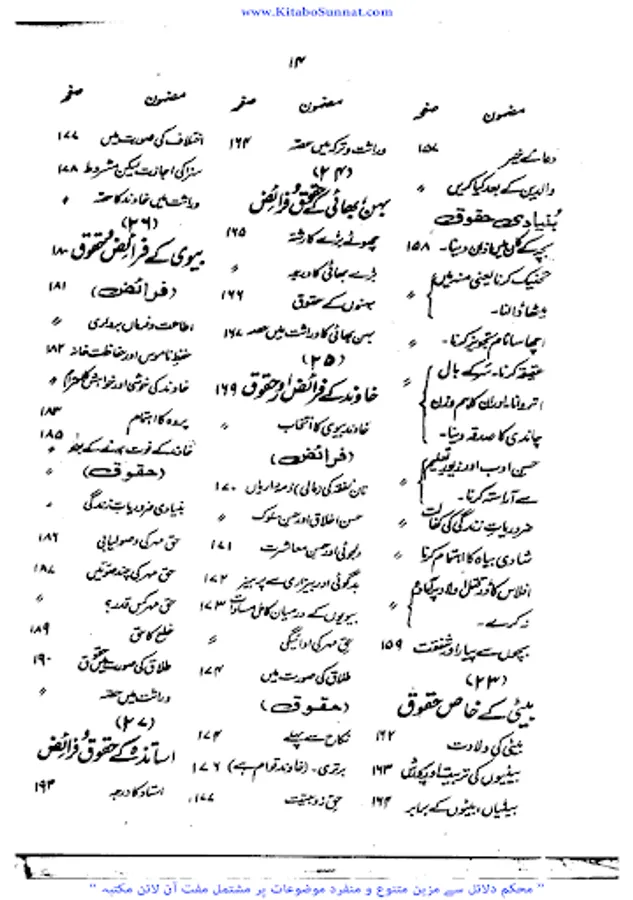 www.KitaboSunnat.com
۱۴
مضمون صفحہ
دعائے خیر ۱۵۷
والدین کے بعد کیا کریں 〃
بُنیادی حقوق
بچے کے کان میں اذان دینا۔ ۱۵۸
تحنیک کرنا یعنی منہ میں 〃
میٹھا ڈالنا۔
اچھا سا نام تجویز کرنا۔ 〃
عقیقہ کرنا۔ سر کے بال 〃
اتروانا اور ان کا ہم وزن
چاندی کا صدقہ دینا۔
حسن ادب اور زیور تعلیم 〃
سے آراستہ کرنا۔
ضروریات زندگی کی کفالت 〃
شادی بیاہ کا اہتمام کرنا 〃
افلاس کا ڈر قتل اولاد پر آمادہ 〃
نہ کرے۔
بچوں سے پیار اور شفقت ۱۵۹
(۲۳)
بیٹی کے خاص حقوق
بیٹی کی ولادت ۱۶۲
بیٹیوں کی تربیت اور پرورش ۱۶۳
بیٹیاں، بیٹوں کے برابر ۱۶۴
مضمون صفحہ
وراثت و ترکہ میں حصہ ۱۶۴
(۲۴)
بہن بھائی کے حقوق و فرائض
چھوٹے بڑے کا رشتہ ۱۶۵
بڑے بھائی کا درجہ 〃
بہنوں کے حقوق ۱۶۶
بہن بھائی کا وراثت میں حصہ ۱۶۷
(۲۵)
خاوند کے فرائض اور حقوق ۱۶۹
خاوند بیوی کا انتخاب 〃
(فرائض)
نان نفقہ کی (مالی) ذمہ داریاں ۱۷۰
حسن اخلاق اور حسن سلوک 〃
دلجوئی اور حسن معاشرت ۱۷۱
بدگوئی اور بیزاری سے پرہیز ۱۷۲
بیویوں کے درمیان کامل مساوات ۱۷۳
حق مہر کی ادائیگی 〃
طلاق کی صورت میں ۱۷۴
(حقوق)
نکاح سے پہلے ۱۷۴
برتری۔ (خاوند قوام ہے) ۱۷۶
حق زوجیت ۱۷۷
مضمون صفحہ
اختلاف کی صورت میں ۱۷۷
سزا کی اجازت لیکن مشروط ۱۷۸
وراثت میں خاوند کا حصہ 〃
(۲۶)
بیوی کے فرائض و حقوق ۱۸۰
(فرائض) ۱۸۱
اطاعت و فرماں برداری 〃
حفظ ناموس اور حفاظت خانہ ۱۸۲
خاوند کی خوشی اور خواہش کا احترام 〃
پردہ کا اہتمام ۱۸۳
خاوند کے فوت ہونے کے بعد ۱۸۵
(حقوق) 〃
بنیادی ضروریات زندگی 〃
حق مہر کی وصولیابی ۱۸۶
حق مہر کی چند صورتیں ۱۸۷
حق مہر کس قدر؟ 〃
خلع کا حق ۱۸۹
طلاق کی صورت میں حقوق ۱۹۰
وراثت میں حصہ 〃
(۲۷)
اساتذہ کے حقوق و فرائض
استاد کا درجہ ۱۹۴
" محکم دلائل سے مزین متنوع و منفرد موضوعات پر مشتمل مفت آن لائن مکتبہ "